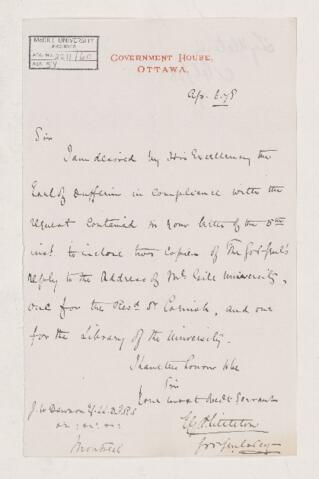 McGILL UNIVERSITY
ARCHIVES
ACC. NO. 2211/60
REF. 54
GOVERNMENT HOUSE,
OTTAWA.
Ap. 6. 78
Sir
I am desired by His Excellency the
Earl of Dufferin in compliance with the
request contained in your letter of the 5th
inst. to inclose two Copies of The Gov. Genl's
reply to the Address of McGill University,
one for the Revd Dr Cornish, and one
for the Library of the University.
I have the honor to be
Sir
Your most Obedt Servant
E G P Littleton
Gov Genl's Secy
J. W Dawson Esq LL.D. F.R.S
Montreal